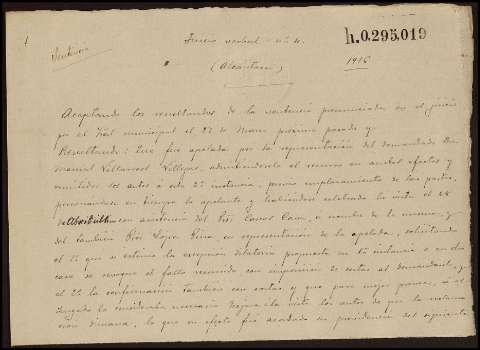 1
Sentencia
Juicio verbal - nº 4.
h.0.295.019
(Alcántara)
1916
Aceptando los resultandos de la sentencia pronunciada en el juicio
por el Tral municipal el 27 de Marzo próximo pasado y
Resultando: Que fué apelada por la representación del demandado Dn
Manuel Villarroel Villegas, admitiéndose el recurso en ambos efectos y
remitidos los autos á esta 2ª instancia, previo emplazamiento de las partes,
personándose en tiempo la apelante y habiéndose celebrado la vista el 28
de Abril con asistencia del Pror en nombre de la misma, y
del también Pror López en representación de la apelada, solicitando
el 1º que se estime la excepción dilatoria propuesta en 1ª instancia ó en otro
caso se revoque el fallo recurrido con imposición de costas al demandante, y
el 2º la confirmación también con costas y que para mejor proveer, si el
Juzgado lo consideraba necesario á la vista los autos de que la
dimana, lo que en efecto fué acordado en providencia del siguiente